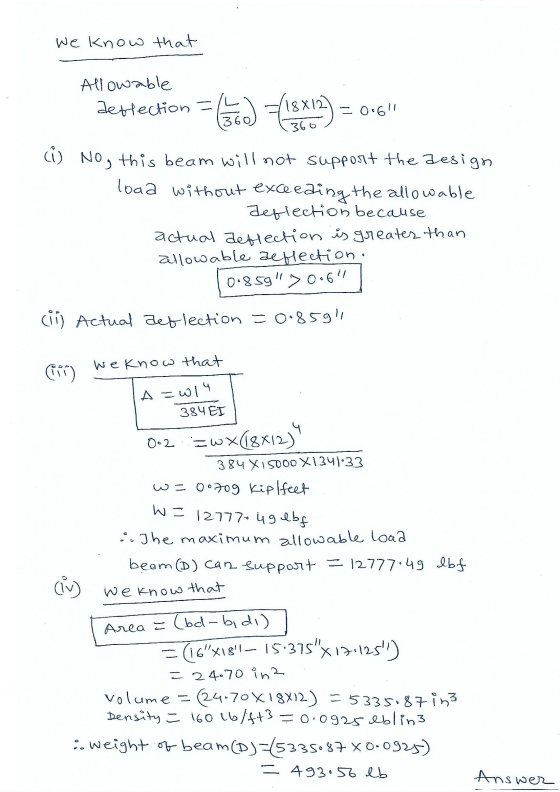 We Know that
Allowable
deflection = (L/360) = (18X12/360) = 0.6"
(i) NO, this beam will not support the design
load without exceeding the allowable
deflection because
actual deflection is greater than
allowable deflection.
0.859" > 0.6"
(ii) Actual deflection = 0.859"
(iii) We Know that
Δ = wl⁴/384EI
0.2 = w×(18×12)⁴/384×15000×1341.33
w = 0.709 Kip/feet
W = 12777.49 lbf
∴ The maximum allowable load
beam(D) can support = 12777.49 lbf
(iv) We Know that
Area = (bd - b₁d₁)
= (16"×18" - 15.375"×17.125")
= 24.70 in²
Volume = (24.70×18×12) = 5335.87 in³
Density = 160 lb/ft³ = 0.0925 lb/in³
∴ Weight of beam(D) = (5335.87 × 0.0925)
= 493.56 lb
Answer